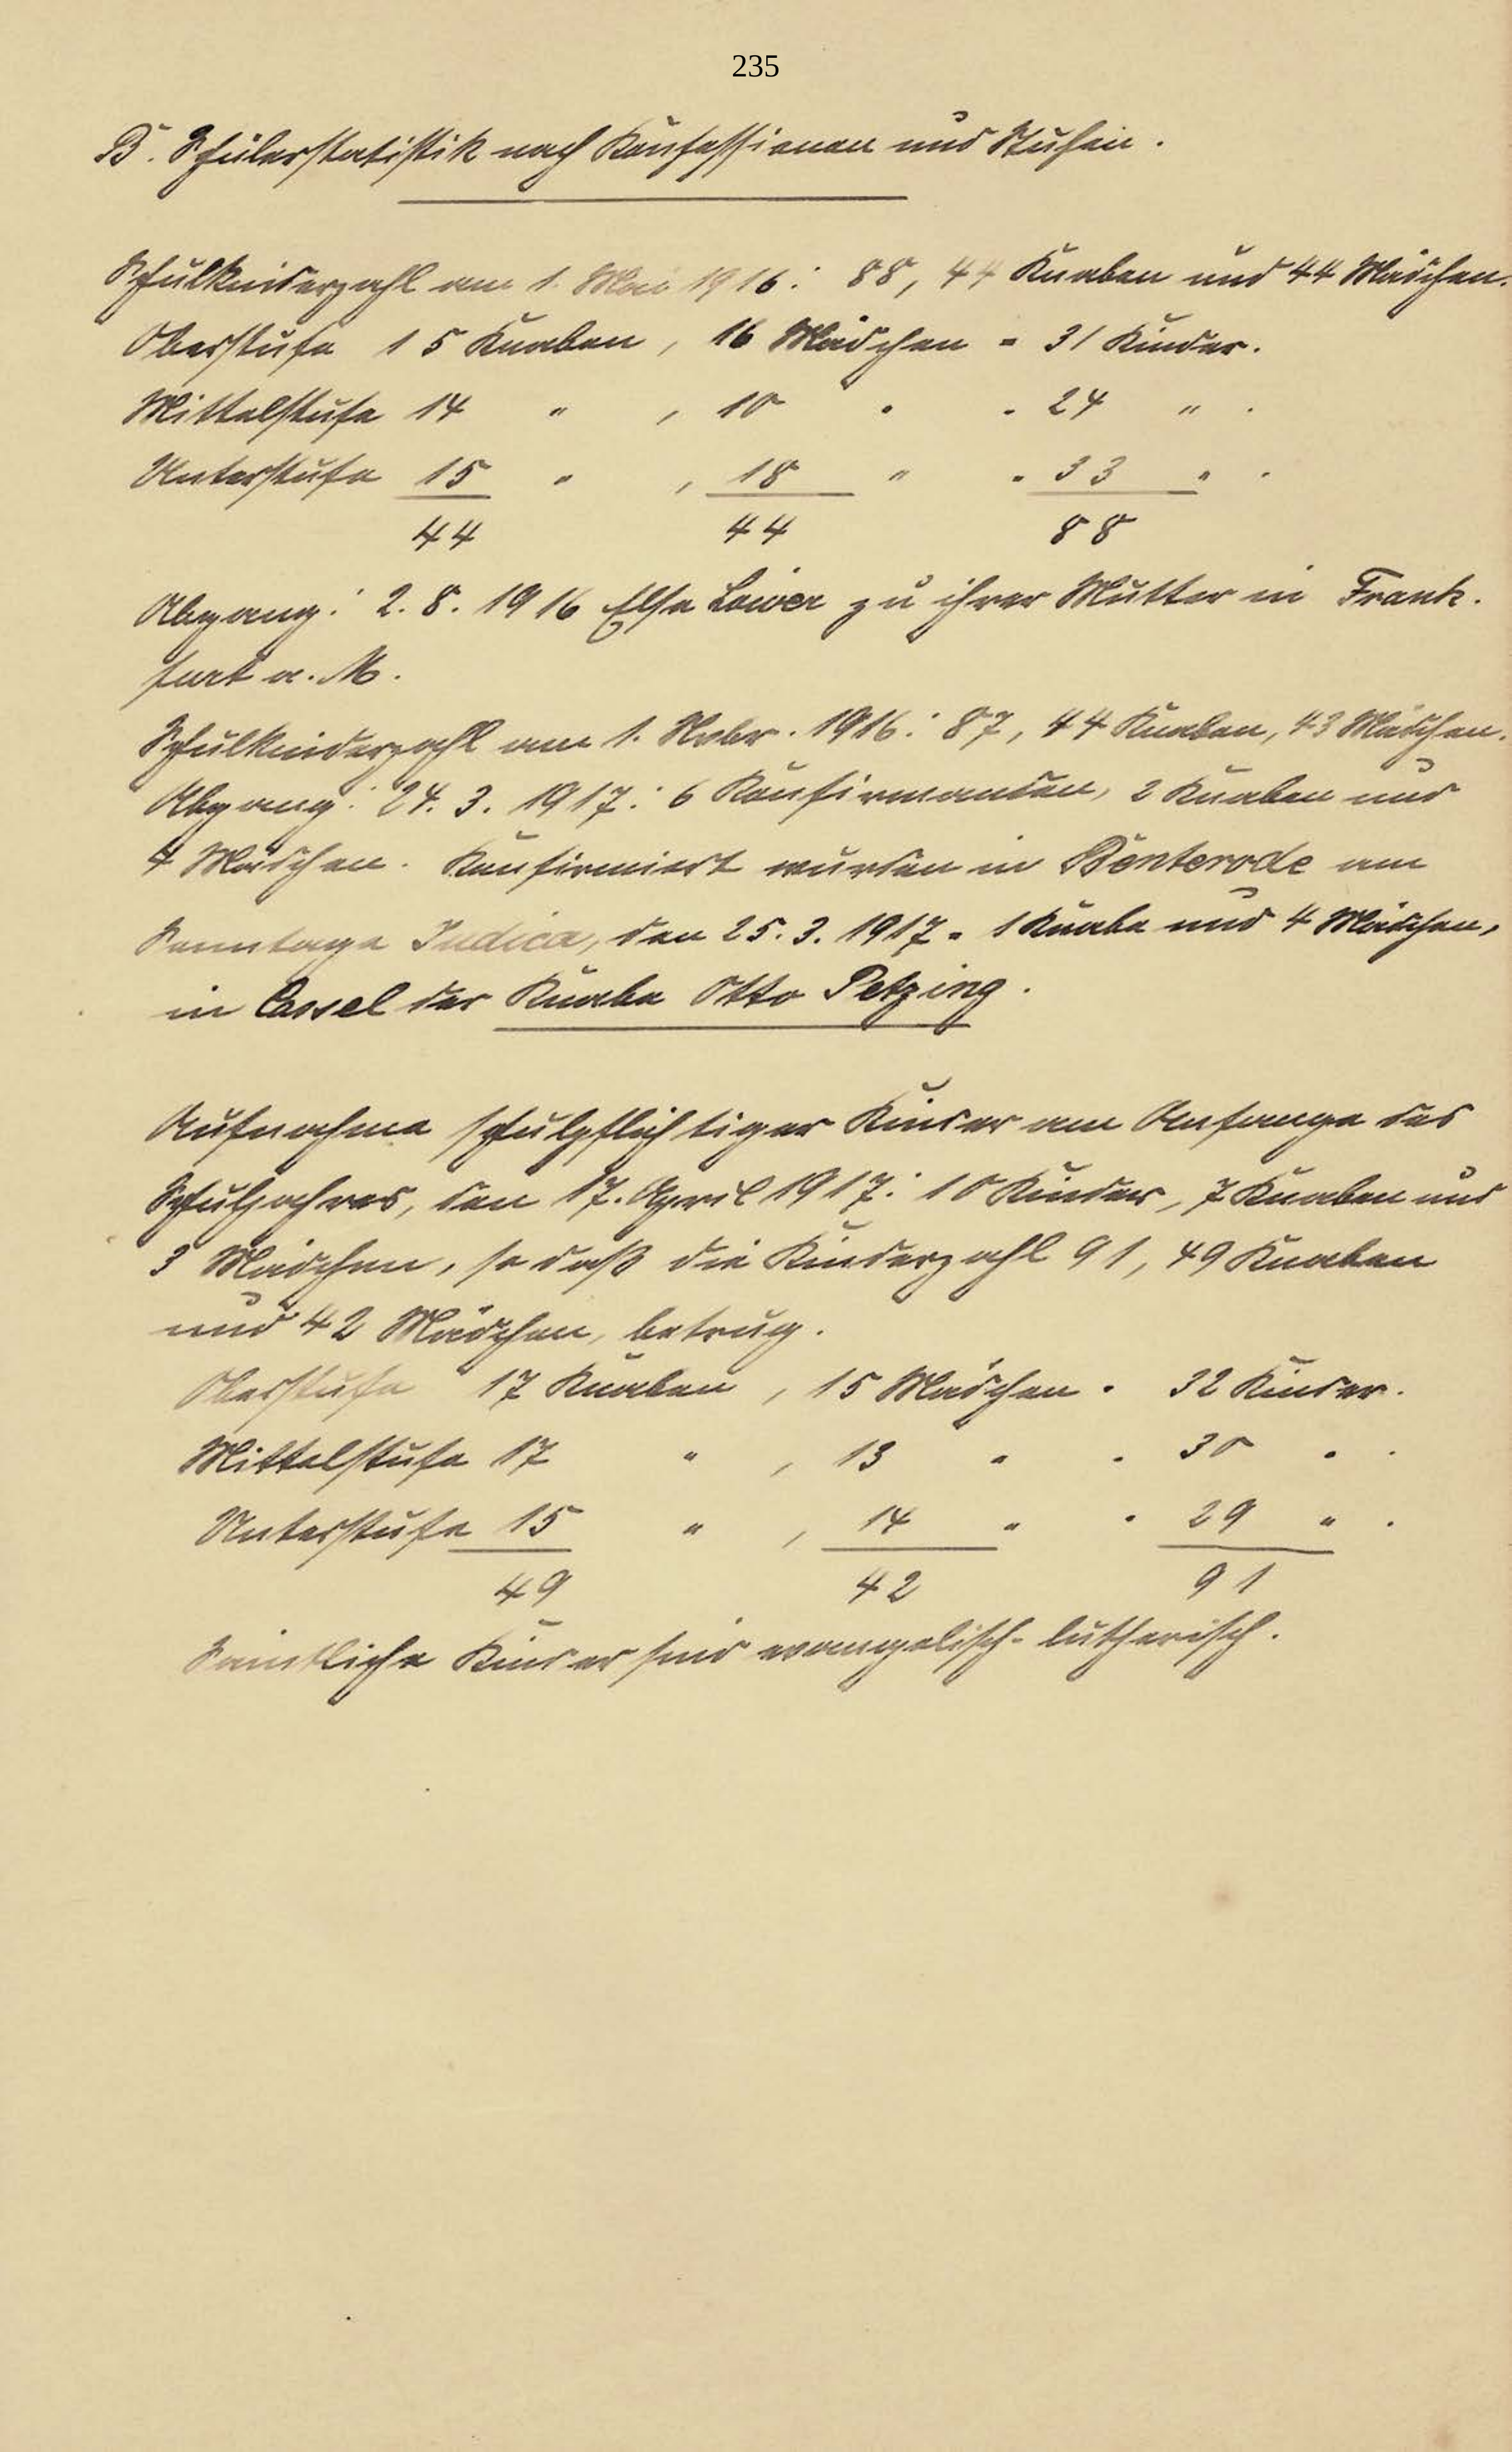 235
B. Schülerstatistik nach Konfessionen und Stufen.
Schulkinderzahl am 1. Mai 1916: 88, 44 Knaben und 44 Mädchen.
Oberstufe 15 Knaben, 16 Mädchen = 31 Kinder.
Mittelstufe 14 " , 10 " = 24 " .
Unterstufe 15 " , 18 " = 33 " .
44 44 88
Abgang: 2.8.1916 Else zu ihrer Mutter in Frank-
furt a. M.
Schulkinderzahl am 1. Novbr. 1916: 87, 44 Knaben, 43 Mädchen.
Abgang: 24.3.1917: 6 Konfirmanden, 2 Knaben und
4 Mädchen. Konfirmiert wurden in Benterode am
Sonntage Judica, den 25.3.1917 = 1 Knabe und 4 Mädchen,
in Cassel der Knabe Otto Petzing.
Aufnahme schulpflichtiger Kinder am Anfange des
Schuljahres, den 17. April 1917: 10 Kinder, 7 Knaben und
3 Mädchen, so daß die Kinderzahl 91, 49 Knaben
und 42 Mädchen, betrug.
Oberstufe 17 Knaben, 15 Mädchen = 32 Kinder.
Mittelstufe 17 " , 13 " = 30 " .
Unterstufe 15 " , 14 " = 29 " .
49 42 91
Sämtliche Kinder sind evangelisch-lutherisch.